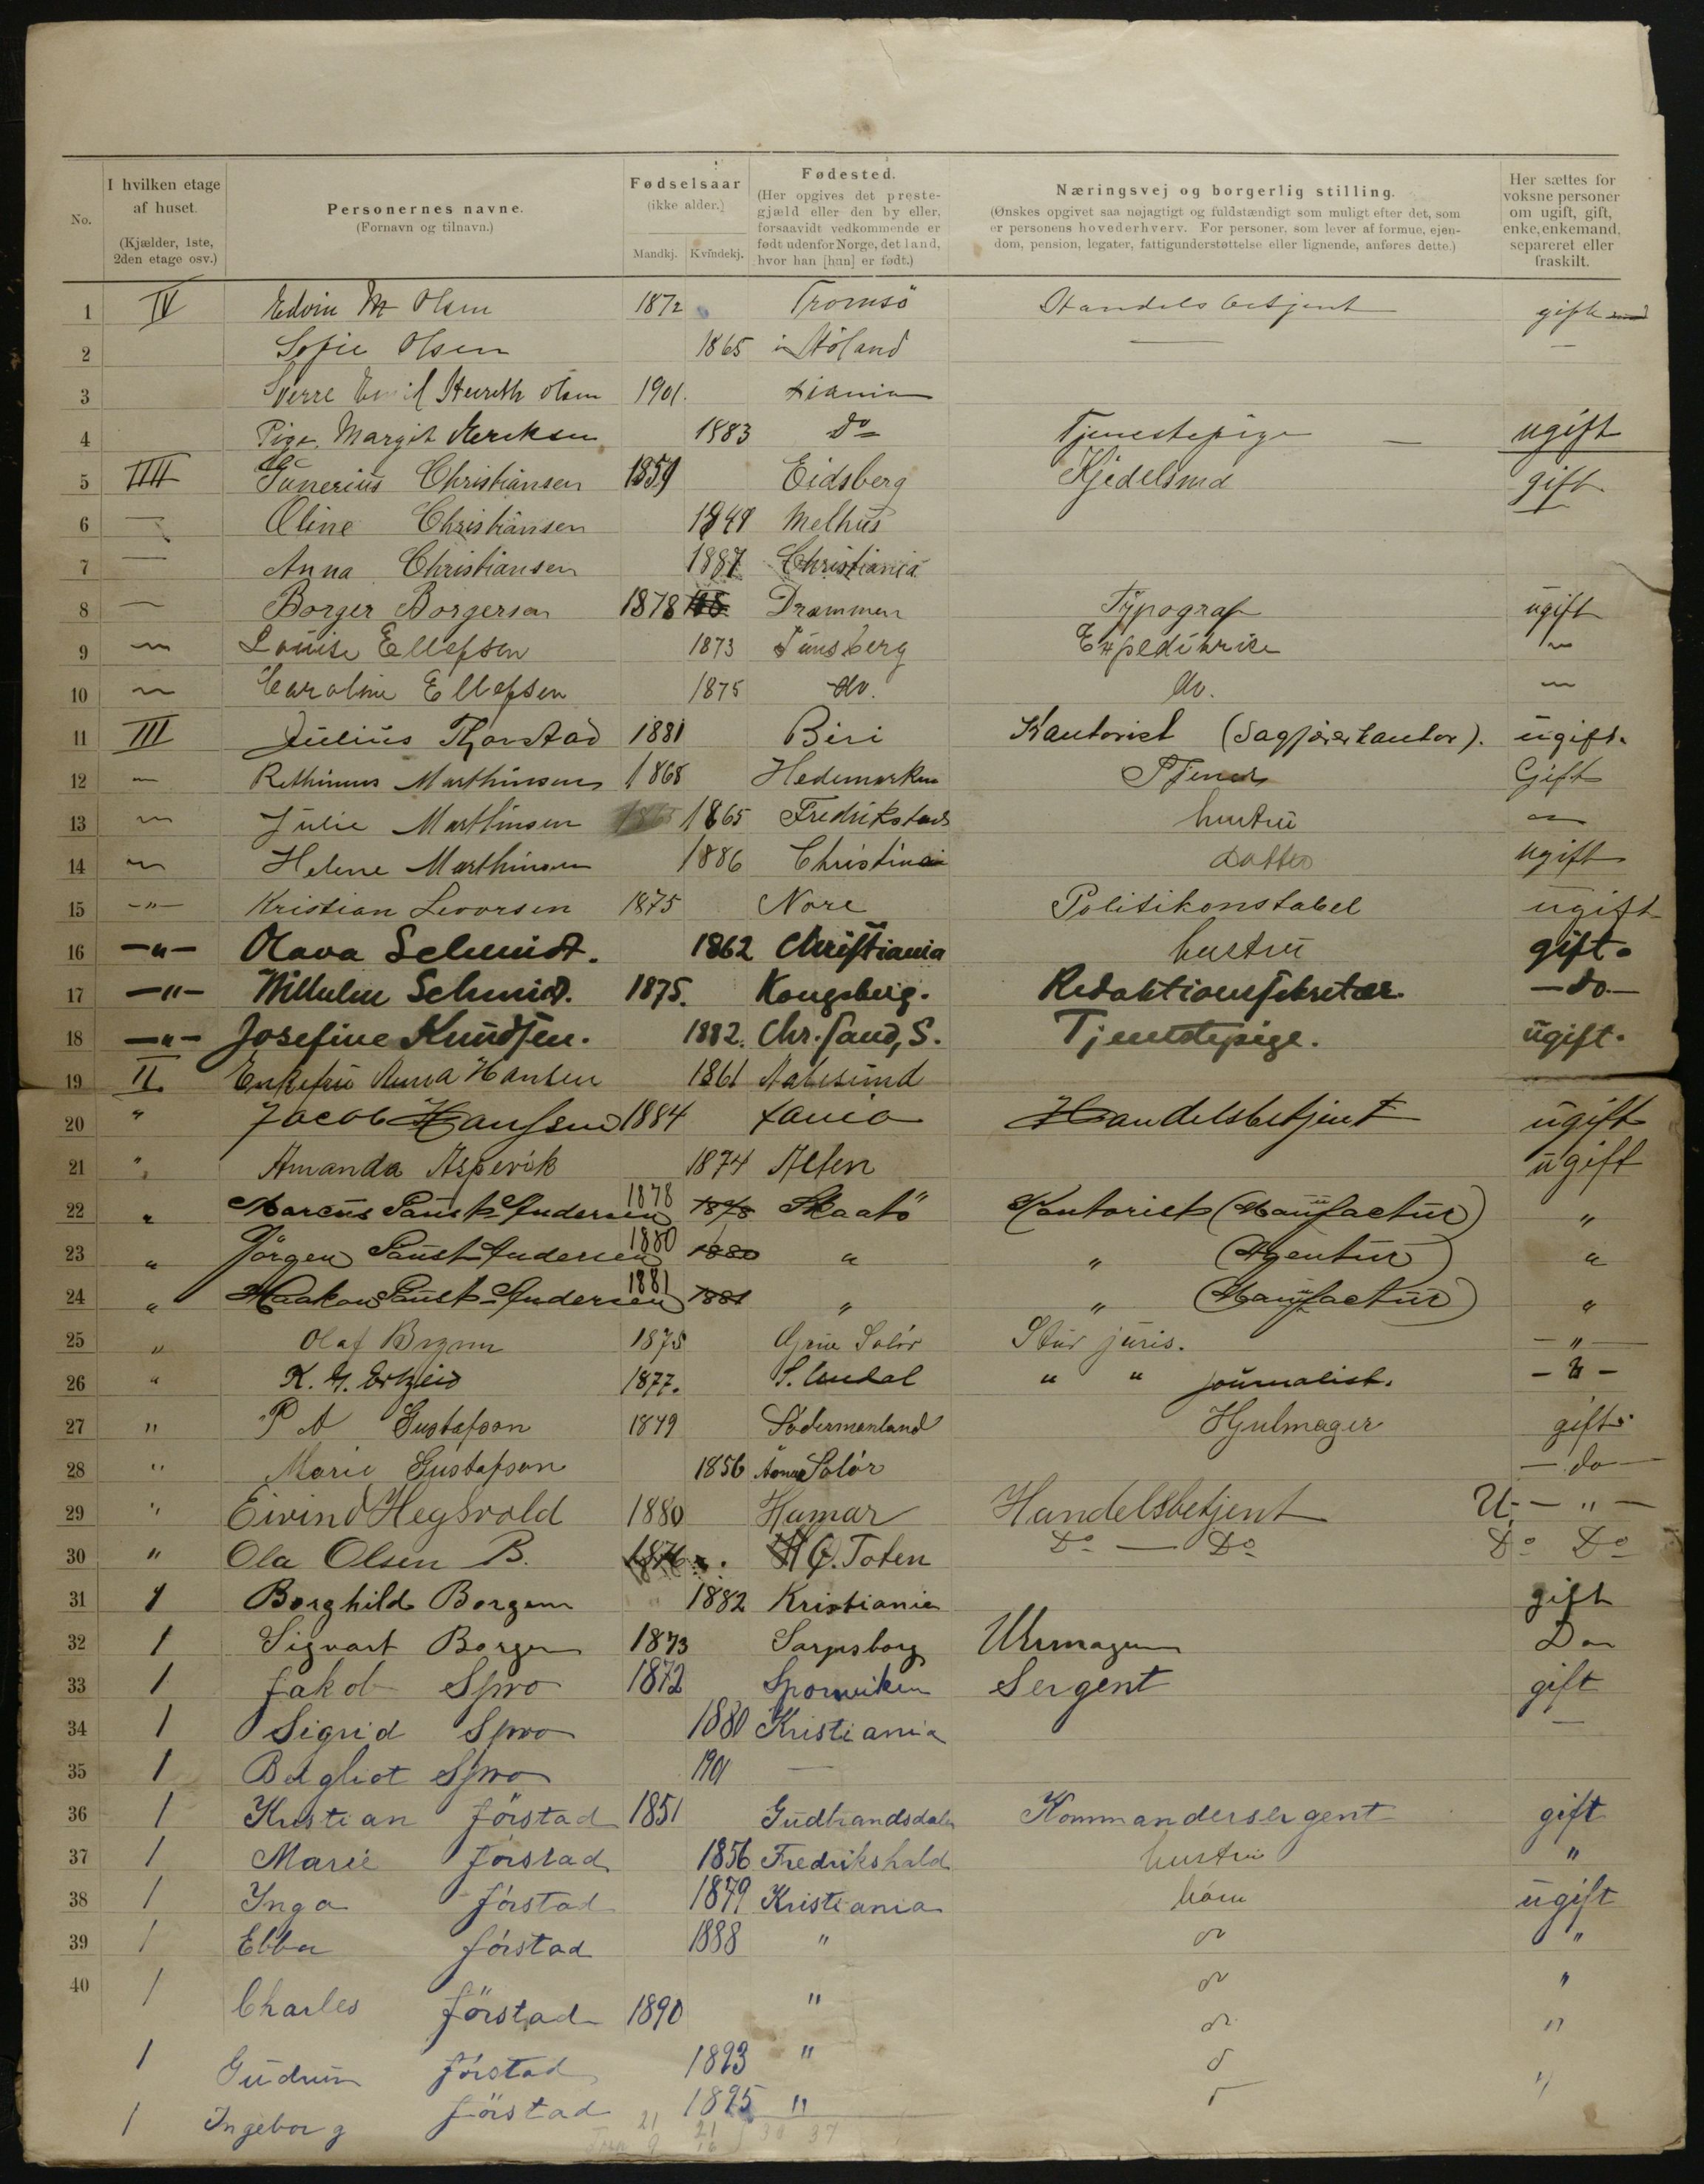 No.
I hvilken etage af huset.
(Kjælder, 1ste, 2den etage osv.)
Personernes navne.
(Fornavn og tilnavn.)
Fødselsaar
(ikke alder.)
Mandkj. Kvindekj.
Fødested.
(Her opgives det preste-
gjæld eller den by eller,
forsaavidt vedkommende er
født udenfor Norge, det land,
hvor han [hun] er født.)
Næringsvej og borgerlig stilling.
(Ønskes opgivet saa nøjagtigt og fuldstændigt som muligt efter det, som
er personens hovederhverv. For personer, som lever af formue, ejen-
dom, pension, legater, fattigunderstøttelse eller lignende, anføres dette.)
Her sættes for
voksne personer
om ugift, gift,
enke, enkemand,
separeret eller
fraskilt.
1 IV Edvin M Olsen 1872 Tromsö Handelsbetjent gift
2 Sofie Olsen 1865 Höland —
3 Sverre Emil Olsen 1901. Xiania
4 Pige. Margit 1883 Do Tjenestepige — ugift
5 IIII Gunerius Christiansen 1859 Eidsberg Kjedelsmd gift
6 — Oline Christiansen 1849 Melhus
7 — Anna Christiansen 1887 Christiania
8 — Borger Borgersen 1878 Drammen Typograf ugift
9 — Louise Ellefsen 1873 Tünsberg Expeditrise —
10 — Caroline Ellefsen 1875 do. do. —
11 III Julius Thorstad 1881 Biri Kantorist (Sagförerkantor). ugift.
12 — Marthinsen 1868 Hedemarken Tjener Gift
13 — Julie Marthinsen 1865 Fredrikstad hustru —
14 — Helene Marthinsen 1886 Christinai datter ugift
15 —"— Kristian Levorsen 1875 Nore Politikonstabel ugift
16 —"— Olava Schmidt. 1862 Christiania hustru gift.
17 —"— Wilhelm Schmidt. 1875. Kongsberg. Redaktionssekretær. —do—
18 —"— Josefine Knudsen. 1882. Chr.sand, S. Tjenestepige. ugift.
19 II Enkefru Anna Hansen 1861 Aalesund
20 " Jacob Hanssen 1884 Xania Handelsbetjent ugift
21 " Amanda Aspevik 1874 Alten ugift
22 " Marcus Paust-Andersen 1878 1878 Skaatö Kontorist (Manufactur) "
23 " Jörgen Paust-Andersen 1880 1880 " " (Agentur) "
24 " Haakon Paust-Andersen 1881 1881 " " (Manufactur) "
25 " Olaf Brynn 1875 Grue Solör Stud juris. —"—
26 " K. G. 1877. S. Undal " " journalist. —"—
27 " P A Gustafson 1849 Södermanland Hjulmager gift
28 " Marie Gustafson 1856 Solör —do—
29 " Eivind Hegsvold 1880 Hamar Handelsbetjent U.— " —
30 " Ola Olsen B. 1876 Toten Do — Do Do Do
31 1 Borghild Borgen 1882 Kristiania gift
32 1 Sigvart Borgen 1873 Sarpsborg Uhrmager Do
33 1 Jakob Spro 1872 Sponviken Sergent gift
34 1 Sigrid Spro 1880 Kristiania —
35 1 Bergliot Spro 1901 —
36 1 Kristian Jörstad 1851 Gudbrandsdalen Kommandersergent gift
37 1 Marie Jörstad 1856 Fredrikshald hustru "
38 1 Inga Jörstad 1879 Kristiania barn ugift
39 1 Ebba Jörstad 1888 " "
40 1 Charles Jörstad 1890 " "
1 Gudrun Jörstad 1893 " "
1 Ingeborg Jörstad 1895 " "